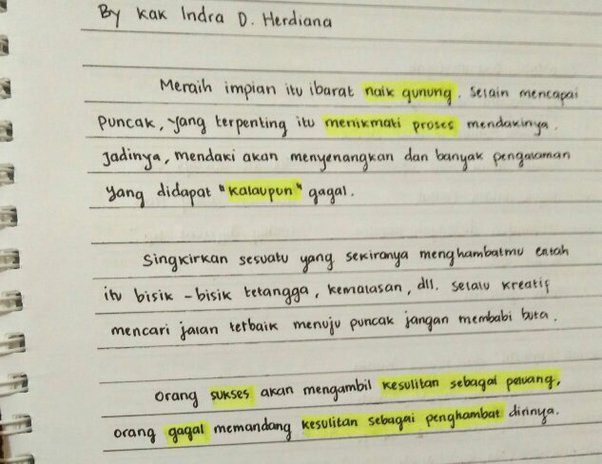 By Kak Indra D. Herdiana
Meraih impian itu ibarat naik gunung. Selain mencapai
puncak, yang terpenting itu menikmati proses mendakinya.
Jadinya, mendaki akan menyenangkan dan banyak pengalaman
yang didapat "kalaupun" gagal.
Singkirkan sesuatu yang sekiranya menghambatmu entah
itu bisik-bisik tetangga, kemalasan, dll. Selalu kreatif
mencari jalan terbaik menuju puncak jangan membabi buta.
Orang sukses akan mengambil kesulitan sebagai peluang,
orang gagal memandang kesulitan sebagai penghambat dirinya.